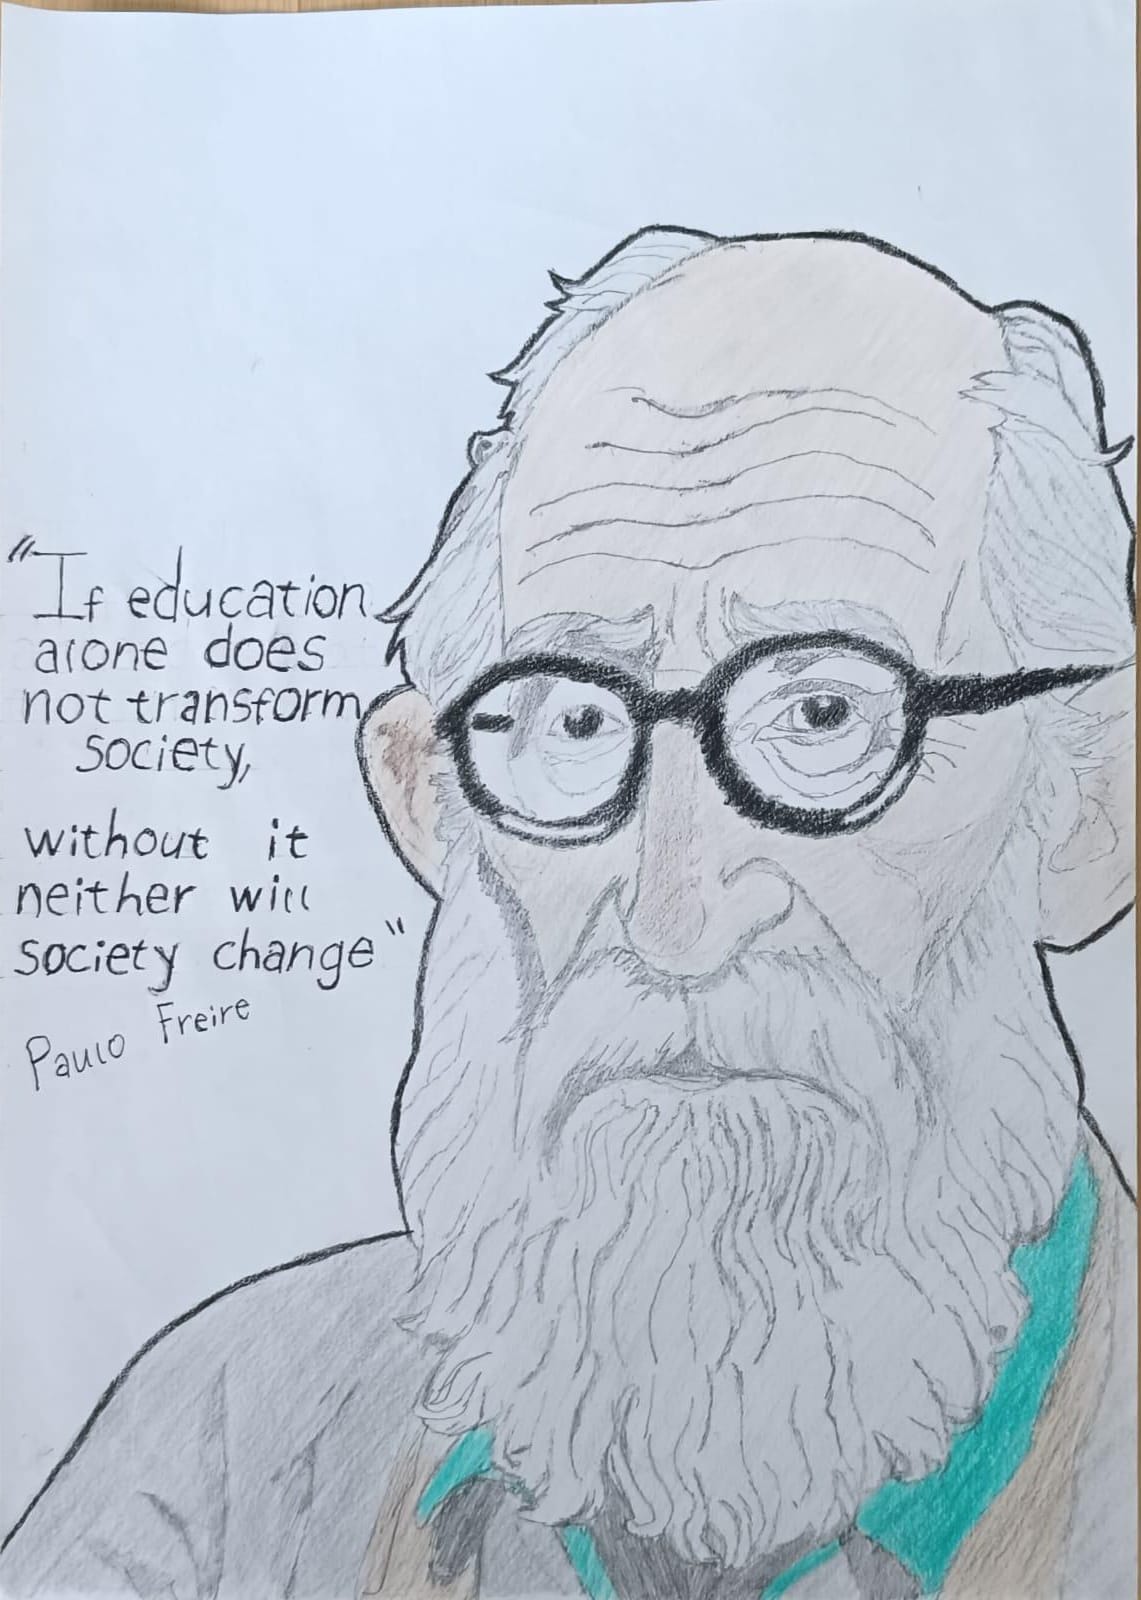 "If education
alone does
not transform
society,
without it
neither will
society change"
Paulo Freire